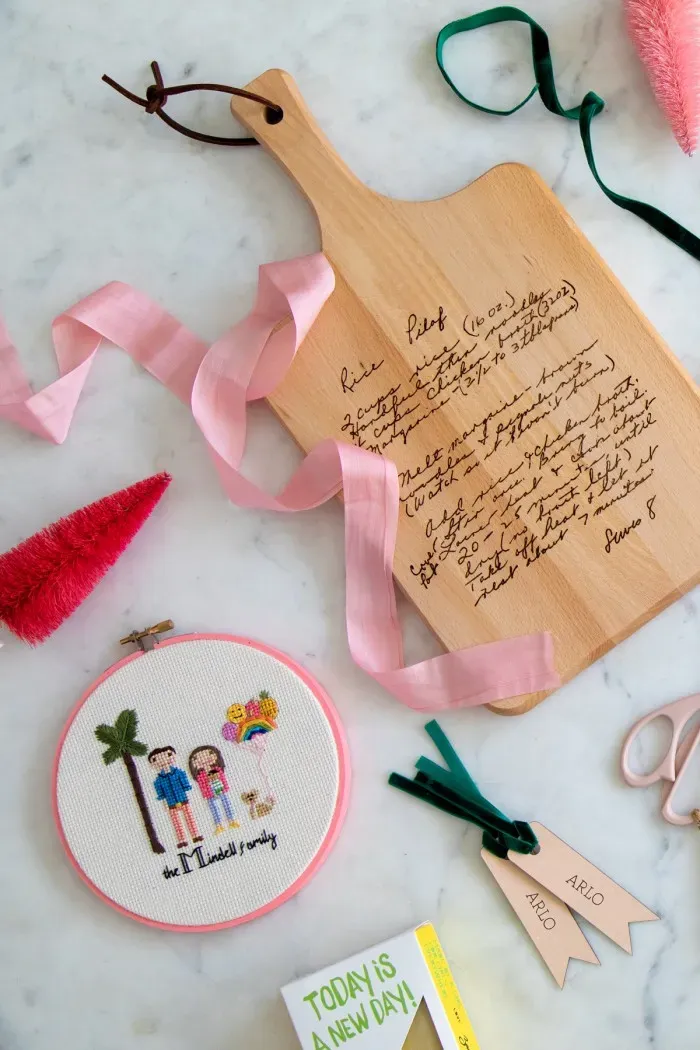 Rice Pilaf
2 cups rice (16 oz.)
Handful thin noodles
4 cups chicken broth (32oz)
Margarine (2 1/2 to 3 tblspoons)
Melt margarine brown
noodles & nuts
(Watch so it doesn't burn)
Add rice & chicken broth.
Stir once. Bring to boil.
Cover Pot
Lower heat & simmer about
20 - 25 min until
(no broth left)
Take off heat & let it
rest about 7 minutes
Serves 8
the Mindell family
ARLO
ARLO
TODAY iS
A NEW DAY!